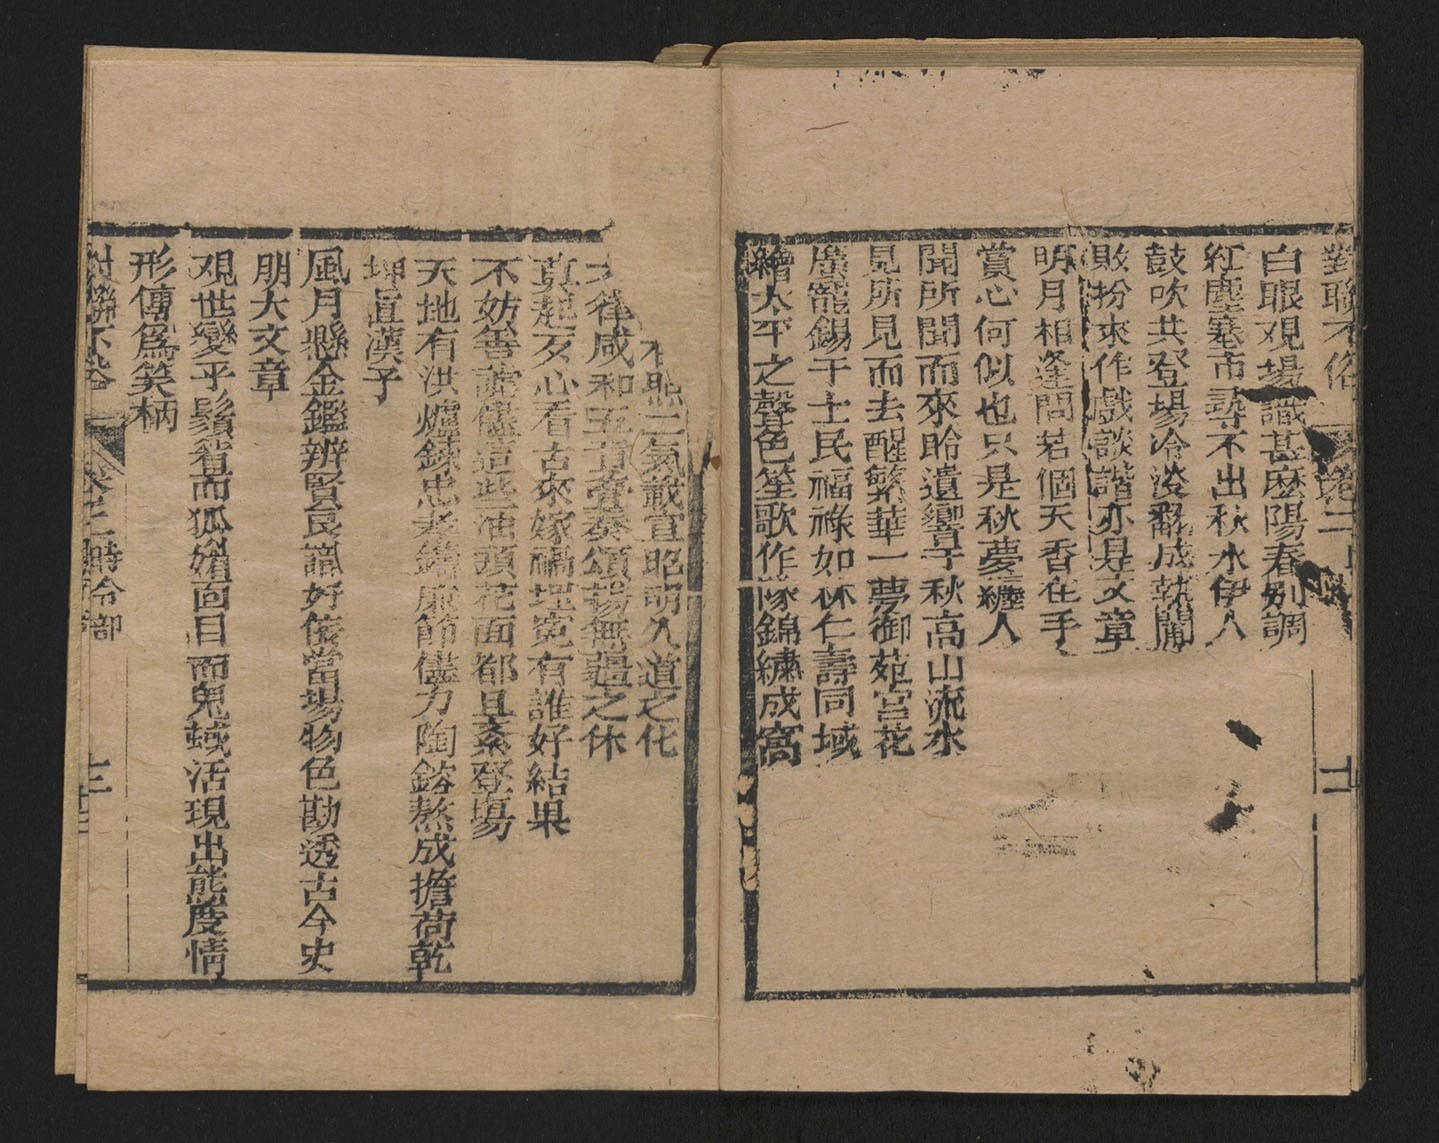 對聯不俗
卷二
十二
白眼观場識甚麽陽春别調
紅塵塞市尋不出秋水伊人
鼓吹共登場冷淡翻成熱鬧
敗扮來作戲談諧亦是文章
明月相逢問若個天香在手
賞心何似也只是秋夢纏人
聞所聞而來聆遺響于秋高山流水
見所見而去醒繁華一夢御苑宫花
廣寵錫于士民福祿如林仁壽同域
繪太平之聲色笙歌作隊錦繡成窩
二氣載宣昭明久道之化
律咸和五音叠奏頌揚無疆之休
真起歹心看古來嫁禍埋寃有誰好結果
不妨善謔儘這些油頭花面都且紊登塲
天地有洪爐錬忠孝鑄廉節儘力陶鎔熬成擔荷乾
坤直漢子
風月懸金鑑辨賢良識好侫當場物色勘透古今史
册大文章
观世變乎鬚眉而狐媚面目而鬼蜮活現出態度情
形傳爲笑柄
對聯不俗
卷二 時令部
十三